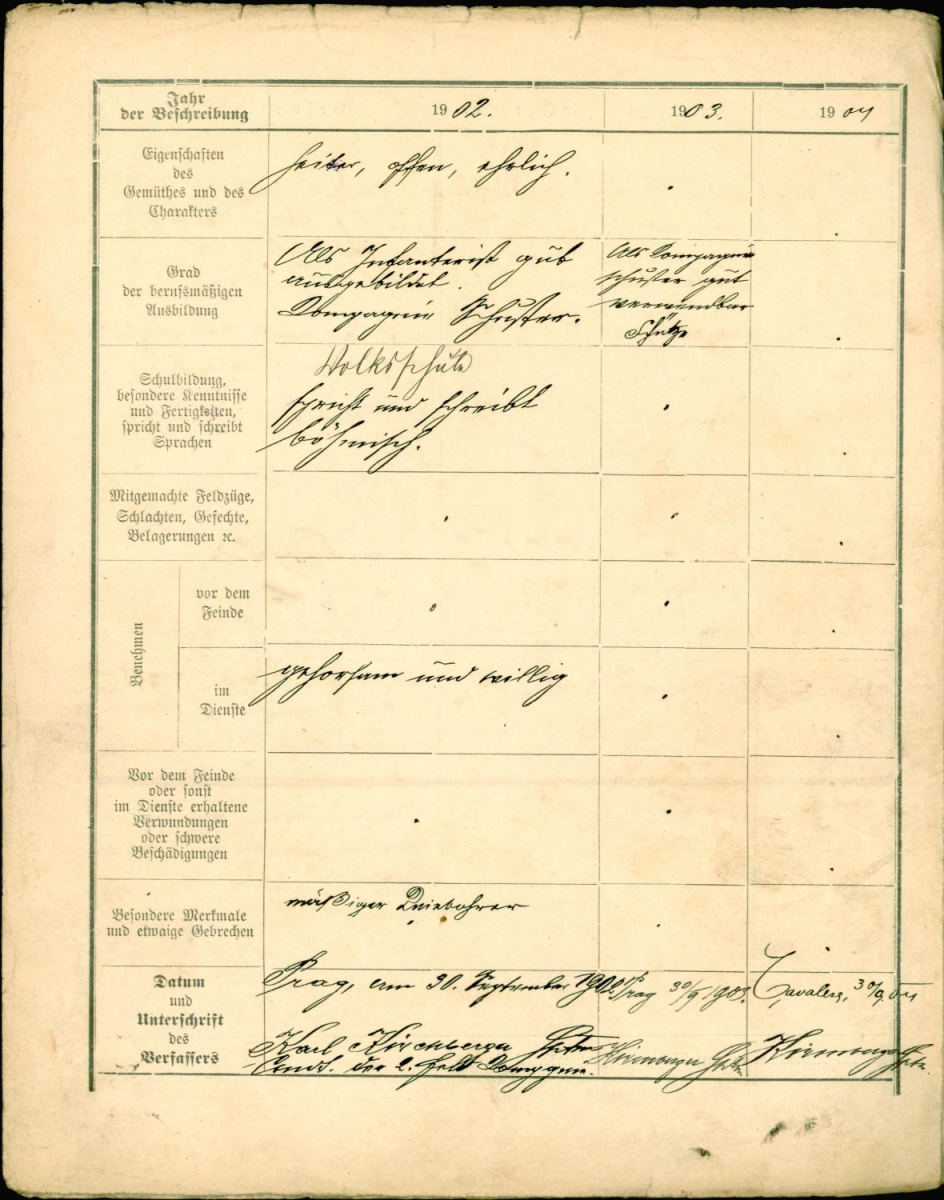 Jahr
der Beschreibung
1902.
1903.
1904
Eigenschaften
des
Gemüthes und des
Charakters
heiter, offen, ehrlich.
Grad
der berufsmäßigen
Ausbildung
Als Infanterist gut
ausgebildet.
Kompagnie Schuster.
Als Compagnie
schuster gut
verwendbar
Schütze
Schulbildung,
besondere Kenntnisse
und Fertigkeiten,
spricht und schreibt
Sprachen
Volksschule
spricht und schreibt
böhmisch.
Mitgemachte Feldzüge,
Schlachten, Gefechte,
Belagerungen ꝛc.
Benehmen
vor dem
Feinde
im
Dienste
gehorsam und willig
Vor dem Feinde
oder sonst
im Dienste erhaltene
Verwundungen
oder schwere
Beschädigungen
Besondere Merkmale
und etwaige Gebrechen
mäßiger Kniebohrer
Datum
und
Unterschrift
des
Verfassers
Prag, am 30. September 1902
Karl Kirchberger Hptm
Cmdt. der 2. Feld Kompagnie.
Prag 30/9 1903.
Hptm
30/9 04
Hptm.